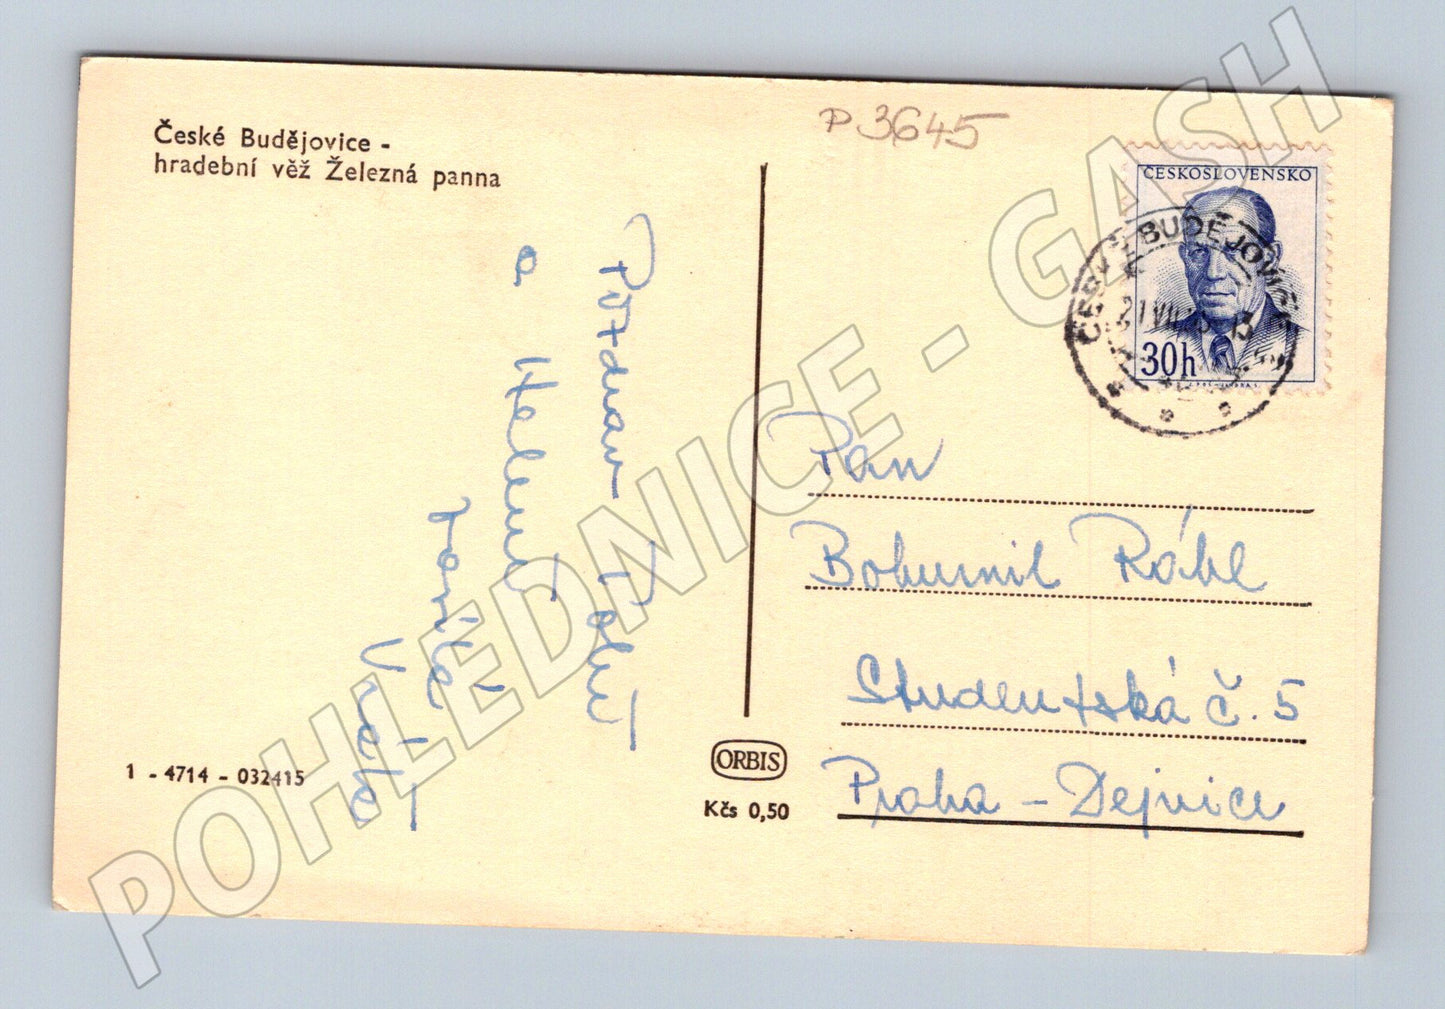 České Budějovice -
hradební věž Železná panna
P 3645
ČESKOSLOVENSKO
30h
BUDĚJOVICE
21.VII
Pozdrav
a Helenu
posílá
Pan
Bohumil Rábl
Studentská č. 5
Praha - Dejvice
ORBIS
Kčs 0,50
1 - 4714 - 032415
POHLEDNICE - GASH